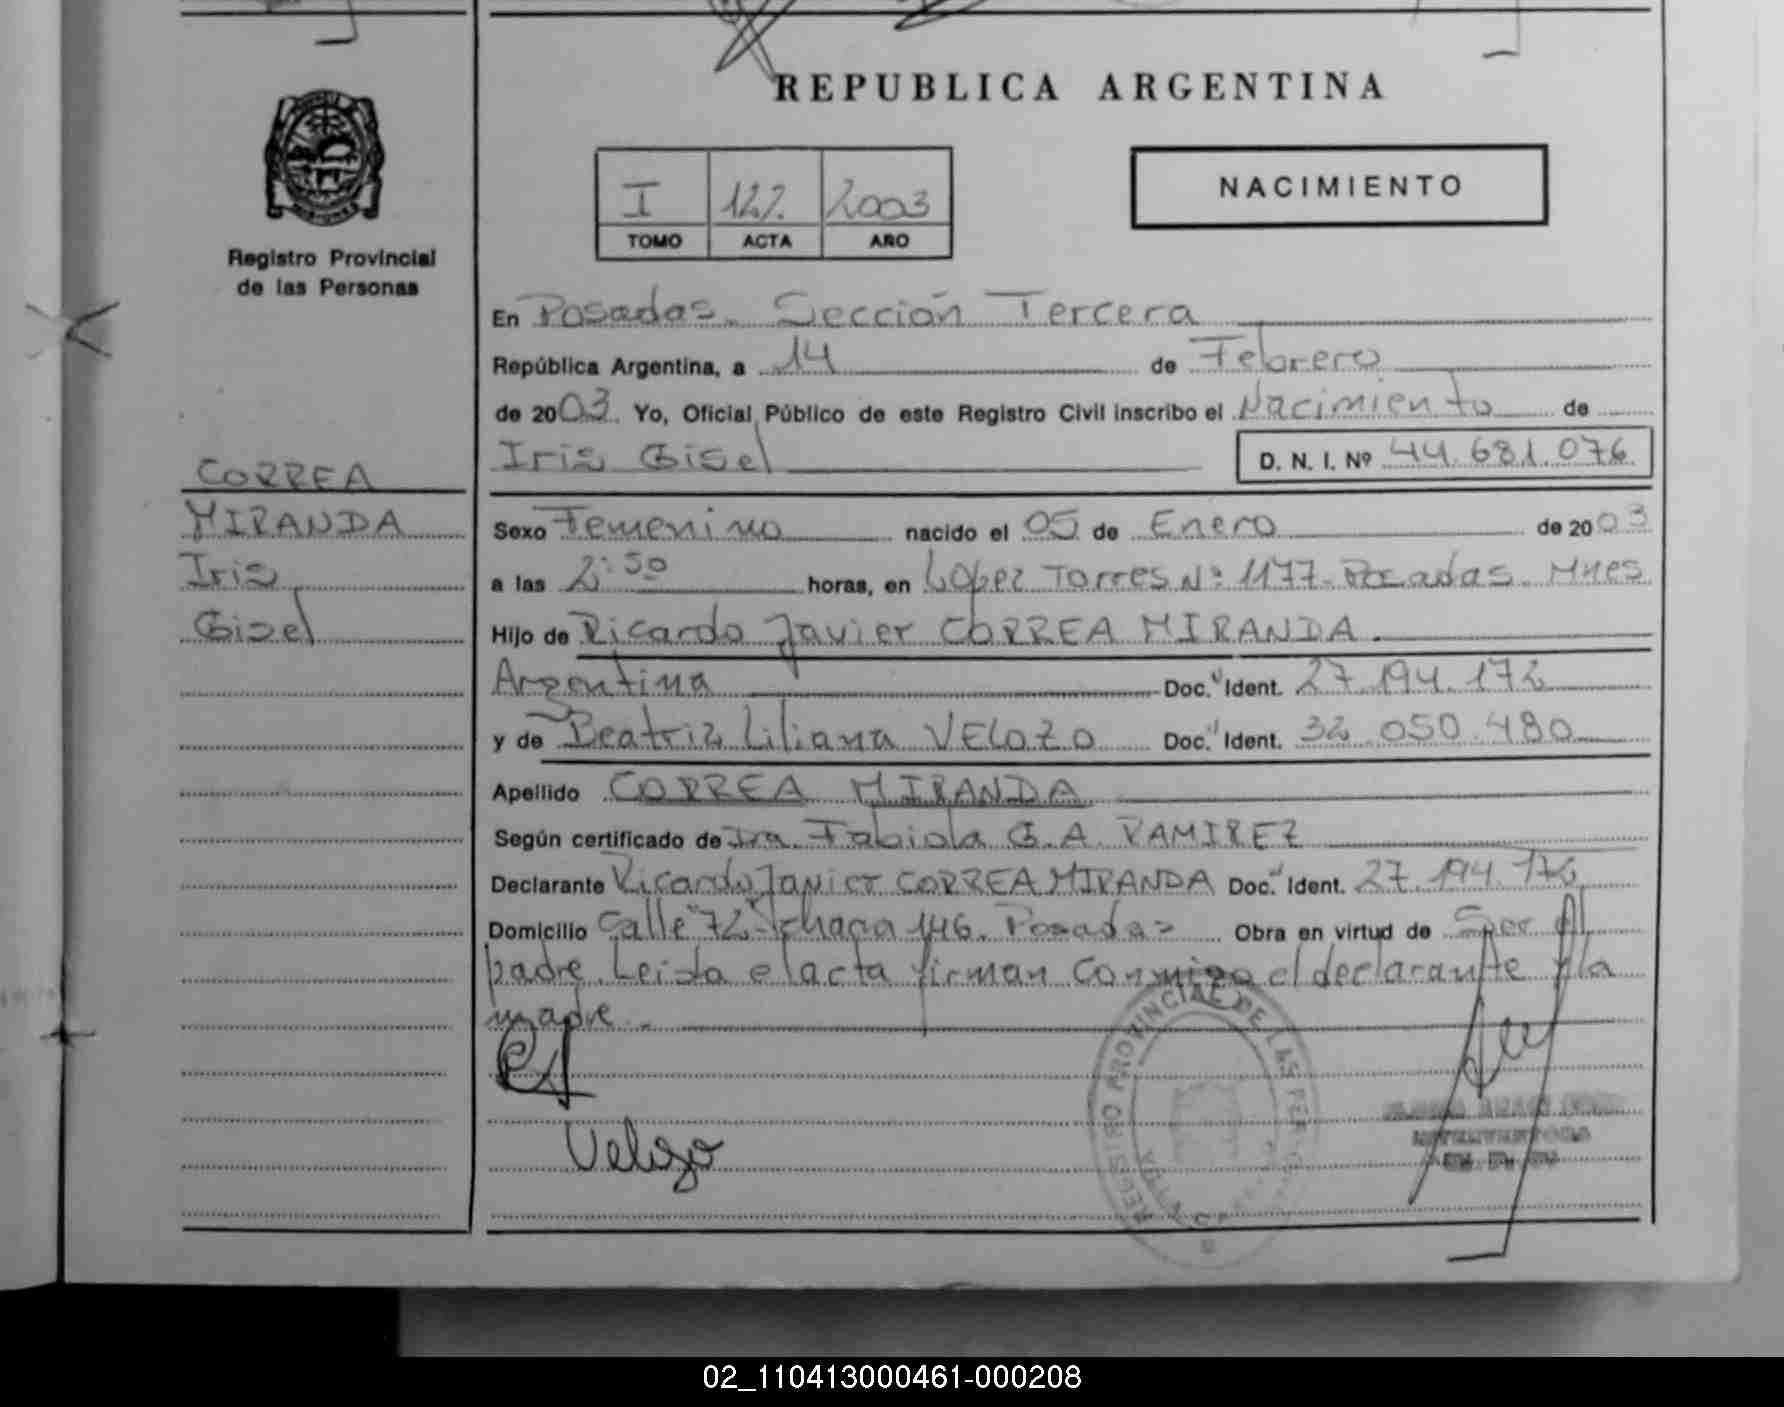 REPUBLICA ARGENTINA
MISIONES
Registro Provincial
de las Personas
I 127. 2003
TOMO ACTA AÑO
NACIMIENTO
En Posadas. Sección Tercera
República Argentina, a 14 de Febrero
de 2003. Yo, Oficial Público de este Registro Civil inscribo el Nacimiento de
Iris Gisel D. N. I. Nº 44.681.076
CORREA
MIRANDA
Iris
Gisel
Sexo Femenino nacido el 05 de Enero de 2003
a las 2:50 horas, en López Torres Nº 1177. Posadas. Mnes
Hijo de Ricardo Javier CORREA MIRANDA.
Argentina Doc. Ident. 27.194.172
y de Beatriz Liliana VELOZO Doc. Ident. 32.050.480
Apellido CORREA MIRANDA
Según certificado de Dra. Fabiola G. A. RAMIREZ
Declarante Ricardo Javier CORREA MIRANDA Doc. Ident. 27.194.172
Domicilio Calle "72" chacra 146. Posadas Obra en virtud de Ser el
padre. Leída el acta firman conmigo el declarante y la
madre.-
Velozo
REGISTRO PROVINCIAL DE LAS PERSONAS
INTERVENTORA
02_110413000461-000208